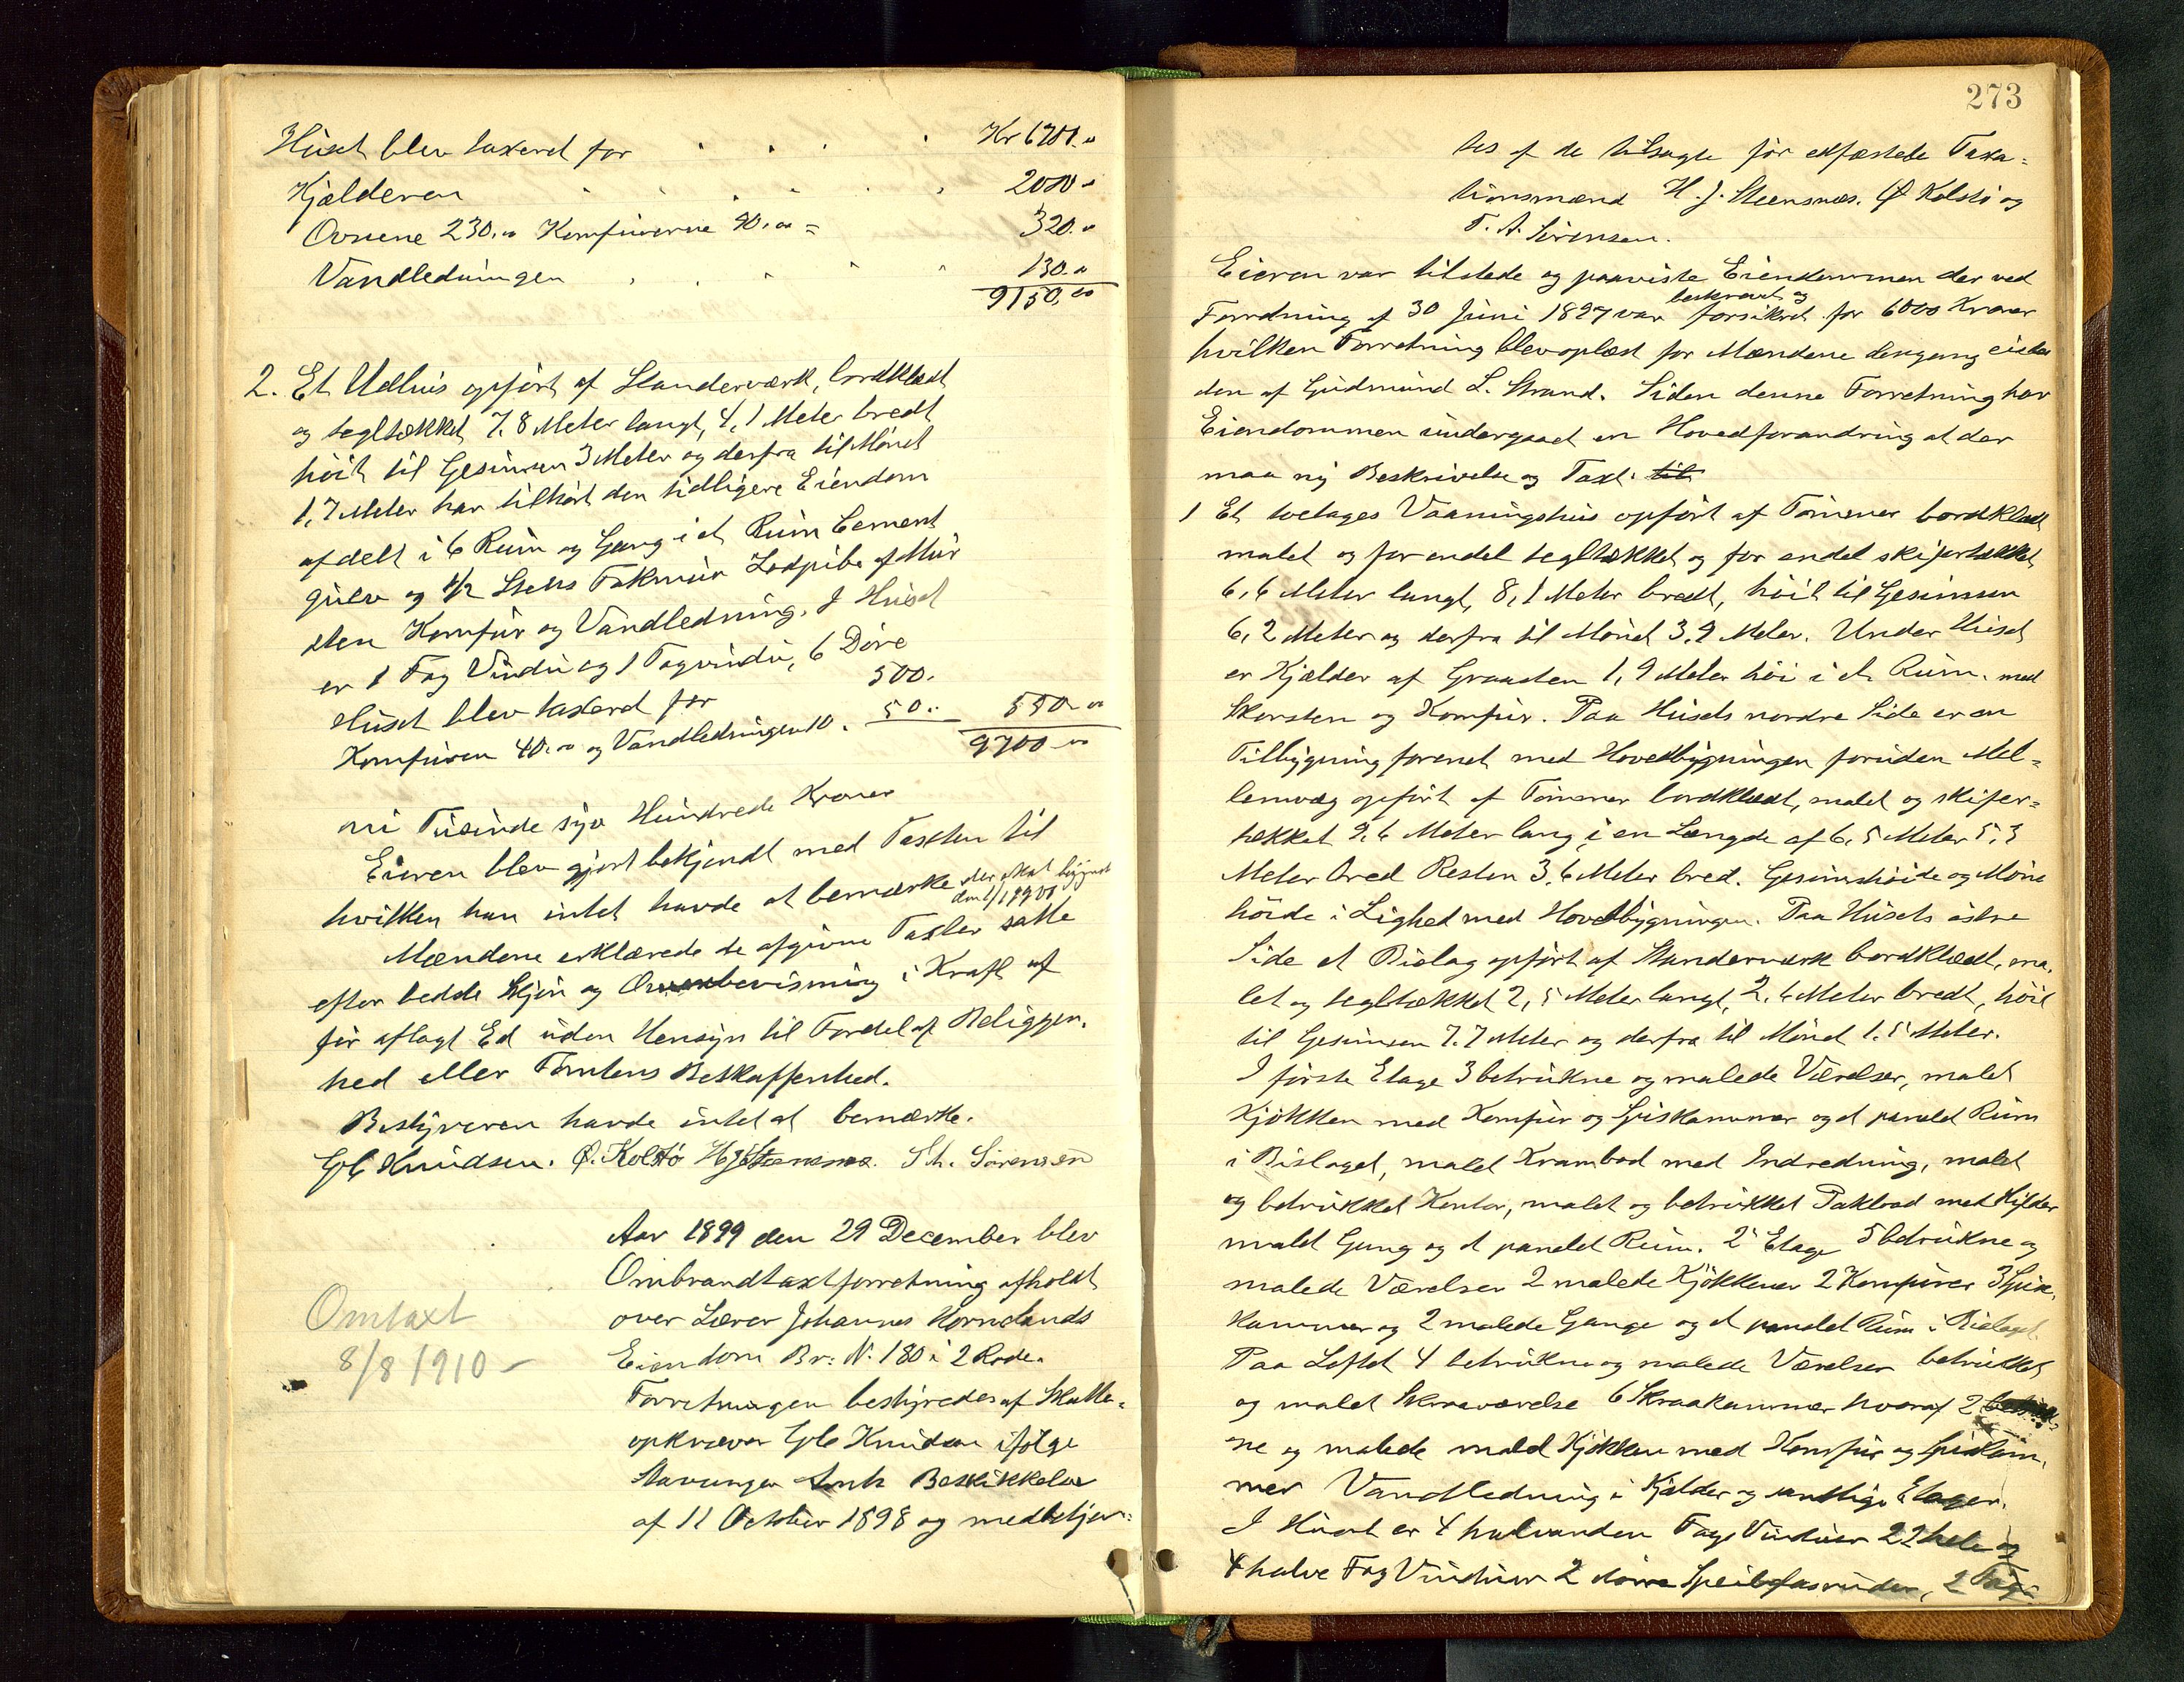 Huset blev taxeret for Kr 6700.00
Kjælderen 2000.-
Ovnene 230.00 Komfurerne 90.00 = 320.00
Vandledningen 130.00
9150.00
2. Et Udhus opført af Standerværk, bordklædt
og tegltækket 7.8 Meter langt, 4,1 Meter bredt
høit til Gesimsen 3 Meter og derfra til Mønet
1,7 Meter har tilhørt den tidligere Eiendom
afdelt i 6 Rum og Gang i et Rum Cement
gulv og 1/2 Stens Fakmur Lodpibe af Mur
sten Komfur og Vandledning. I Huset
er 1 Fag Vindu og 1 Tagvindu, 6 Døre
Huset blev taxeret for 500.
Komfuren 40.00 og Vandledningen 10. 50.00 550.00
9700.00
ni Tusinde syv Hundrede Kroner
Eieren blev gjort bekjendt med Taxten til
hvilken han intet havde at bemærke der skat begynde
Mændene erklærede de afgivne Taxter satte
efter bedste Skjøn og Overbevisning i Kraft af
før aflagt Ed uden Hensyn til Fordel af Beliggen-
hed eller Tomtens Beskaffenhed.
Bestyreren havde intet at bemærke.
Glb Knudsen. Ø. Kolstø H J Steensnæs. Th. Sørensen
Aar 1899 den 29 December blev
Ombrandtaxtforretning afholdt
over Lærer Johannes Hornelands
Eiendom Br: N. 180 i 2 Rode.
Forretningen bestyredes af Skatte-
opkræver Glb Knudsen ifølge
Stavanger Amts Beskikkelse
af 11 October 1898 og medbetjen-
Omtaxt
8/8 1910 -
273
tes af de tilsagte før edfæstede Taxa-
tionsmænd H. J. Steensnæs. Ø Kolstø og
T. A. Sørensen.
Eieren var tilstede og paaviste Eiendommen der ved
beskrevet og
Forretning af 30 Juni 1897 var forsikret for 6000 Kroner
hvilken Forretning blev oplæst for Mændene dengang eiet
den af Gudmund L. Strand. Siden denne Forretning har
Eiendommen undergaaet en Hovedforandring at der
maa ny Beskrivelse og Taxt. til
1 Et toetages Vaaningshus opført af Tømmer bordklædt
malet og for endel tegltækket og for endel skifertækket
6,6 Meter langt, 8,1 Meter bredt, høit til Gesimsen
6,2 Meter og derfra til Mønet 3.9 Meter. Under Huset
er Kjælder af Graasten 1,9 Meter høi i et Rum. med
Skorsten og Komfur. Paa Husets nordre Side er en
Tilbygning forenet med Hovedbygningen foruden Mel-
lemvæg opført af Tømmer bordklædt, malet og skifer-
tækket 9.6 Meter lang i en Længde af 6.5 Meter 5,3
Meter bred Resten 3,6 Meter bred. Gesimshøide og Møne
høide i Lighed med Hovedbygningen. Paa Husets østre
Side et Bislag opført af Standerværk bordklædt, ma-
let og tegltækket 2,5 Meter langt, 2,6 Meter bredt, høit
til Gesimsen 7.7 Meter og derfra til Mønet 1.5 Meter.
I første Etage 3 betrukne og malede Værelser, malet
Kjøkken med Komfur og Spiskammer og et panelet Rum
i Bislaget, malet Krambod med Indredning, malet
og betrukket Kontor, malet og betrukket Pakbod med Hylder
malet Gang og et panelet Rum. 2' Etage 5 betrukne og
malede Værelser 2 malede Kjøkkener 2 Komfurer 3 Spis-
kammer og 2 malede Gange og et panelet Rum i Bislaget
Paa Loftet 4 betrukne og malede Værelser betrukket
og malet Skraaværelse 6 Skraakammer hvoraf 2 betruk-
ne og malede malet Kjøkken med Komfur og Spiskam-
mer Vandledning i Kjælder og samtlige Etager.
I Huset er 4 halvanden Fags Vinduer 22 hele og
4 halve Fag Vinduer 2 større Speilglasruder, 2 Tag-